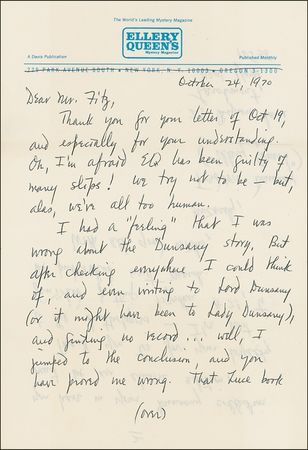 The World's Leading Mystery Magazine
ELLERY
QUEEN'S
Mystery Magazine
A Davis Publication
Published Monthly
229 PARK AVENUE SOUTH • NEW YORK, N.Y. 10003 • OREGON 3-1300
October 24, 1970
Dear Mr. Fitz,
Thank you for your letter of Oct 19,
and especially for your understanding.
Oh, I'm afraid EQ has been guilty of
many slips! We try not to be — but,
alas, we're all too human.
I had a "feeling" that I was
wrong about the Dunsany story, But
after checking everywhere I could think
of, and even writing to Lord Dunsany
(or it might have been to Lady Dunsany),
and finding no record... well, I
jumped to the conclusion, and you
have proved me wrong. That Luce book
(over)